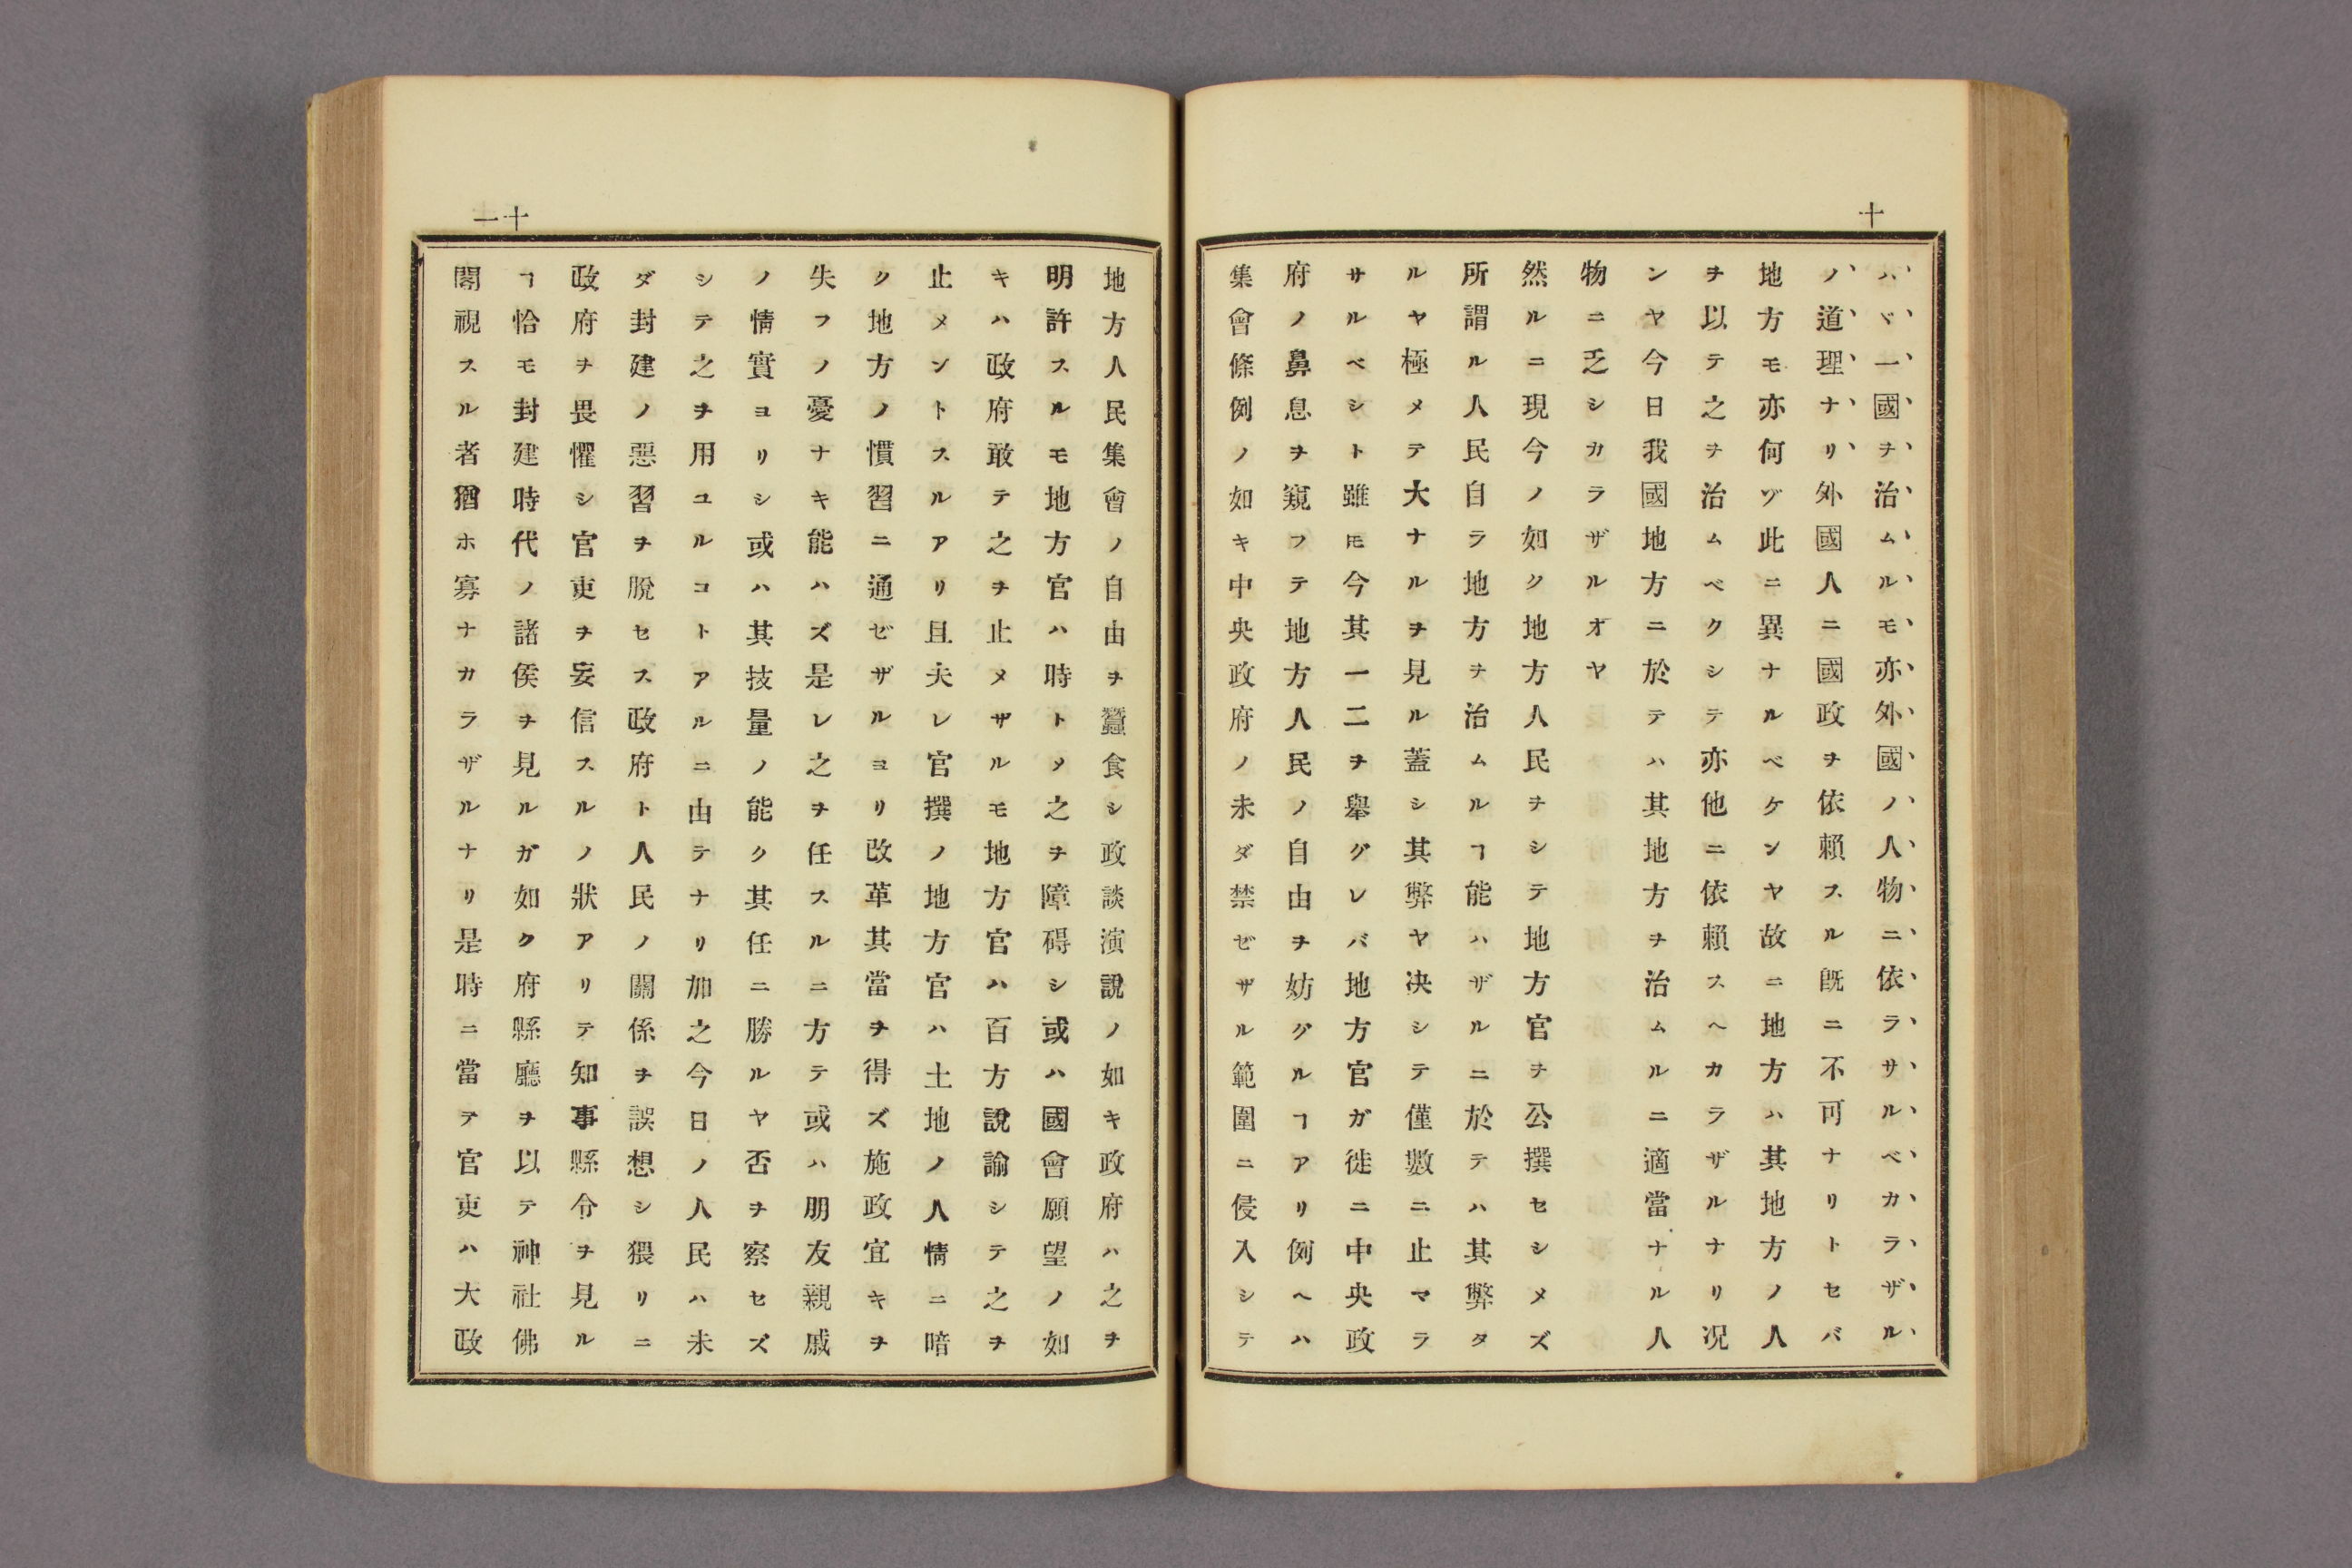 十
ハヾ一國ヲ治ムルモ亦外國ノ人物ニ依ラサルベカラザル
ノ道理ナリ外國人ニ國政ヲ依賴スル旣ニ不可ナリトセバ
地方モ亦何ヅ此ニ異ナルベケンヤ故ニ地方ハ其地方ノ人
ヲ以テ之ヲ治ムベクシテ亦他ニ依賴スヘカラザルナリ况
ンヤ今日我國地方ニ於テハ其地方ヲ治ムルニ適當ナル人
物ニ乏シカラザルオヤ
然ルニ現今ノ如ク地方人民ヲシテ地方官ヲ公撰セシメズ
所謂ル人民自ラ地方ヲ治ムルヿ能ハザルニ於テハ其弊タ
ルヤ極メテ大ナルヲ見ル蓋シ其弊ヤ决シテ僅數ニ止マラ
サルベシト雖𪜈今其一二ヲ擧グレバ地方官ガ徙ニ中央政
府ノ鼻息ヲ窺フテ地方人民ノ自由ヲ妨グルヿアリ例ヘハ
集會條例ノ如キ中央政府ノ未ダ禁ゼザル範圍ニ侵入シテ
十一
地方人民集會ノ自由ヲ蠶食シ政談演說ノ如キ政府ハ之ヲ
明許スルモ地方官ハ時トメ之ヲ障碍シ或ハ國會願望ノ如
キハ政府敢テ之ヲ止メザルモ地方官ハ百方說諭シテ之ヲ
止メントスルアリ且夫レ官撰ノ地方官ハ土地ノ人情ニ暗
ク地方ノ慣習ニ通ゼザルヨリ改革其當ヲ得ズ施政宜キヲ
失フノ憂ナキ能ハズ是レ之ヲ任スルニ方テ或ハ朋友親戚
ノ情實ヨリシ或ハ其技量ノ能ク其任ニ勝ルヤ否ヲ察セズ
シテ之ヲ用ユルコトアルニ由テナリ加之今日ノ人民ハ未
ダ封建ノ惡習ヲ脫セス政府ト人民ノ關係ヲ誤想シ猥リニ
政府ヲ畏懼シ官吏ヲ妄信スルノ狀アリテ知事縣令ヲ見ル
ヿ恰モ封建時代ノ諸侯ヲ見ルガ如ク府縣廳ヲ以テ神社佛
閣視スル者猶ホ寡ナカラザルナリ是時ニ當テ官吏ハ大政